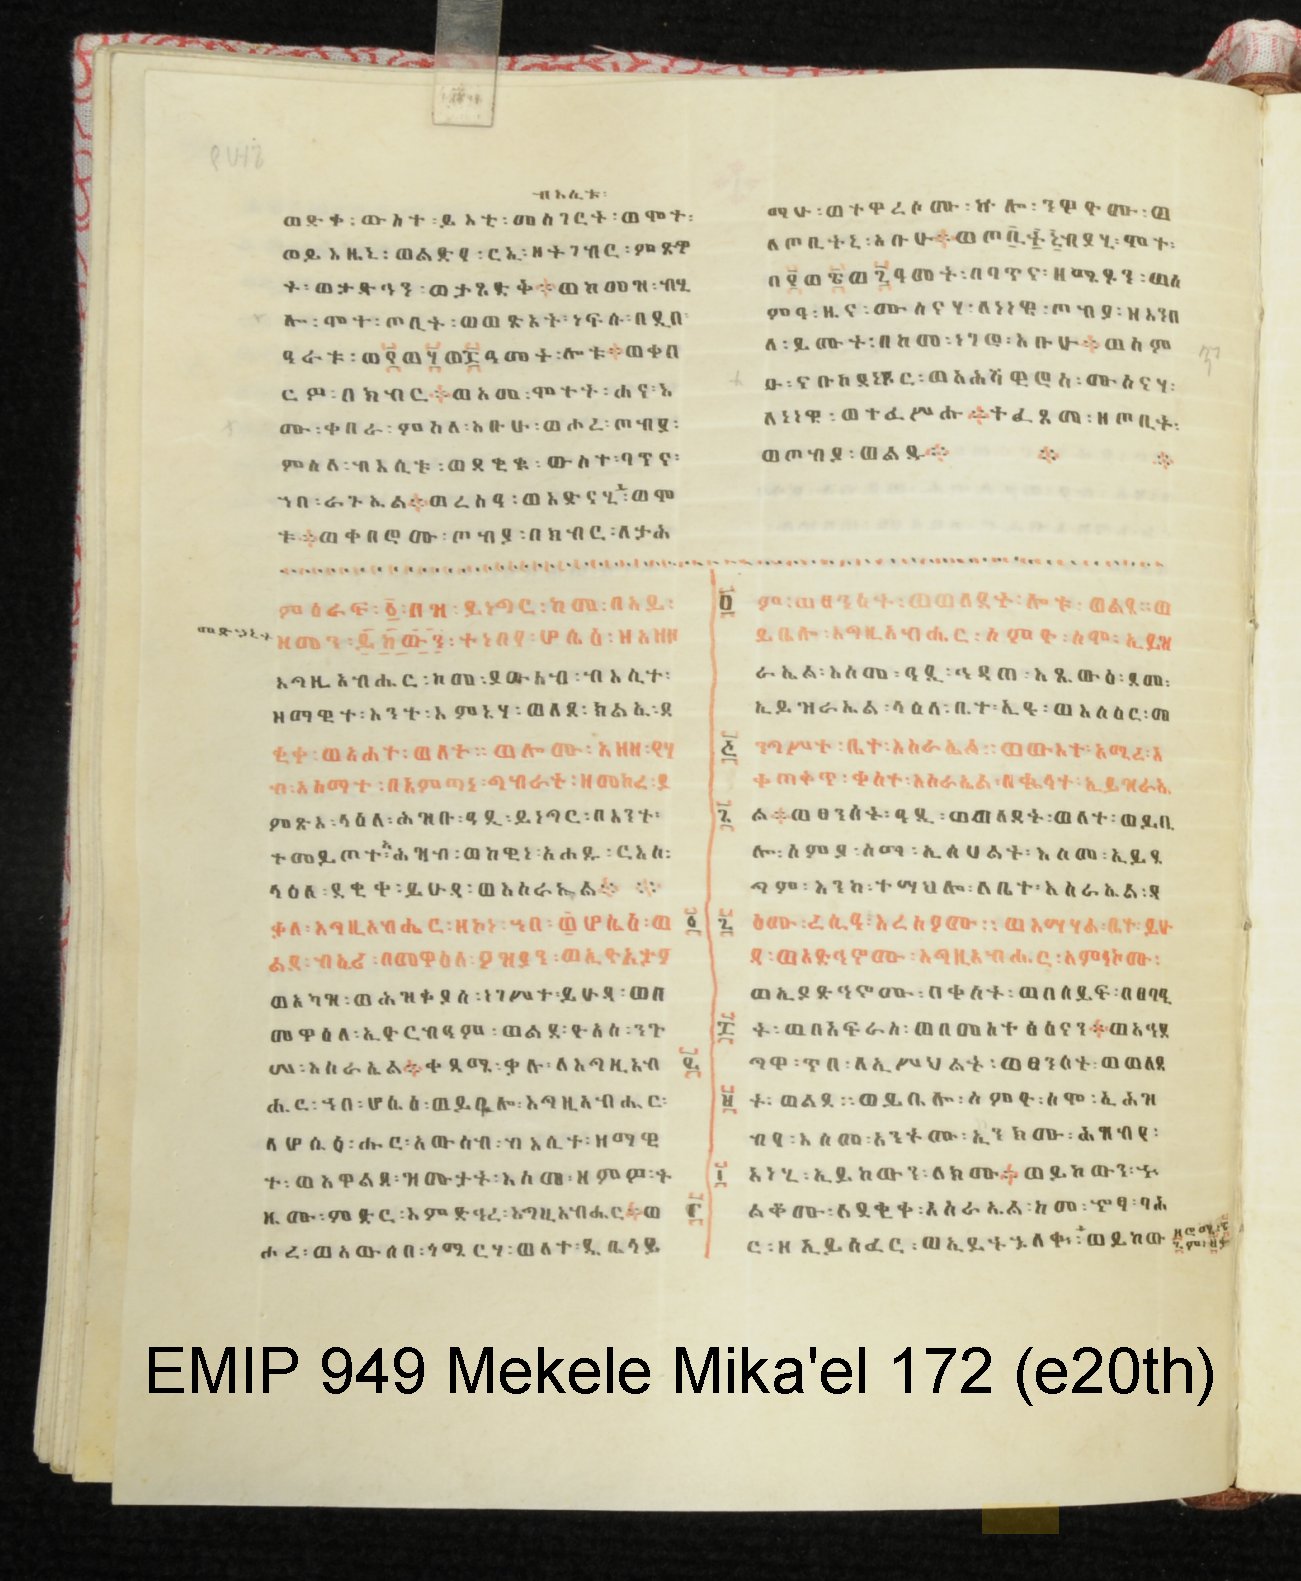 ብእሲቱ፡
ወድቀ፡ውስተ፡ይእቲ፡መስገርት፡ወሞተ፡
ወይእዜኒ፡ወልድየ፡ርኢ፡ዘትገብር፡ምጽዋ
ት፡ወታጽዓን፡ወታጸድቅ፨ወከመዝ፡ብሂ
ሎ፡ሞተ፡ጦቢት፡ወወጽአት፡ነፍሱ፡በዲበ
ዓራቱ፡ወ፻ወ፶ወ፰ዓመት፡ሎቱ፨ወቀበ
ርዎ፡በክብር፨ወአመ፡ሞተት፡ሐና፡እ
ሙ፡ቀበራ፡ምስለ፡አቡሁ፡ወሖረ፡ጦብያ፡
ምስለ፡ብእሲቱ፡ወደቂቁ፡ውስተ፡ባጥና፡
ኀበ፡ራጉኤል፨ወረስዓ፡ወአድናሂ፡ወሞ
ቱ፨ወቀበሮሙ፡ጦብያ፡በክብር፡ለታሕ
ማሁ፡ወተዋረሶሙ፡ኵሎ፡ንዋዮሙ፡ወ
ለጦቢትኒ፡አቡሁ፨
ምዓ፡ዜና፡ሙስናሃ፡ለነነዌ፡ጦብያ፡ዘእንበ
ለ፡ይሙት፡በከመ፡ነገሮ፡አቡሁ፨ወሰም
ዐ፡ናቡከደነጾር፡ወአሕሻዊሮስ፡ሙስናሃ፡
ለነነዌ፡ወተፈሥሐ፨ተፈጸመ፡ዘጦቢት፡
ወጦብያ፡ወልዱ፨
ምዕራፍ፡፩፡በዝ፡ይነግር፡ከመ፡በአይ፡
ዘመን፡ ተነበየ፡ሆሴዕ፡ዘአዘዞ
እግዚአብሔር፡ከመ፡ያውስብ፡ብእሲተ፡
ዘማዊተ፡እንተ፡እምኔሃ፡ወለደ፡ክልኤ፡ደ
ቂቀ፡ወአሐተ፡ወለተ፡፡ወሎሙ፡አዘዘ፡የሃ
ብ፡አስማተ፡በአምጣነ፡ግብራት፡ዘመከረ፡ያ
ምጽእ፡ላዕለ፡ሕዝቡ፡ዓዲ፡ይነግር፡በእንተ፡
ተመይጦተ፡ሕዝብ፡ወከዊነ፡አሐዱ፡ርእስ፡
ላዕለ፡ደቂቀ፡ይሁዳ፡ወእስራኤል፨
ቃለ፡እግዚአብሔር፡ዘኮነ፡ኀበ፡ሆሴዕ፡ወ
ልደ፡ብኤሪ፡በመዋዕለ፡ዖዝያን፡ወኢዮአታም
ወአካዝ፡ወሕዝቀያስ፡ነገሥተ፡ይሁዳ፡ወበ
መዋዕለ፡ኢዮርብዓም፡ወልደ፡ዮአስ፡ንጉ
ሠ፡እስራኤል፨ቀዳሚ፡ቃሉ፡ለእግዚአብ
ሔር፡ኀበ፡ሆሴዕ፡ወይቤሎ፡እግዚአብሔር፡
ለሆሴዕ፡ሑር፡አውስብ፡ብእሲተ፡ዘማዊ
ተ፡ወአዋልደ፡ዝሙታት፡እስመ፡ዘምዎ፡ት
ዜሙ፡ምድር፡እምድኅረ፡እግዚአብሔር፨ወ
ሖረ፡ወአውሰበ፡ጎሜርሃ፡ወለተ፡ዴቤላይ
ም፡ወፀንሰት፡ወወለደት፡ሎቱ፡ወልደ፡፡ወ
ይቤሎ፡እግዚአብሔር፡ስምዮ፡ስሞ፡ኢይዝ
ራኤል፡እስመ፡ዓዲ፡ኅዳጠ፡እጼውዕ፡ደመ፡
ኢይዝራኤል፡ላዕለ፡ቤተ፡ኢዩ፡ወእስዕር፡መ
ንግሥተ፡ቤተ፡እስራኤል፡፡ወውእተ፡አሚረ፡እ
ቀጠቅጥ፡ቀስተ፡እስራኤል፡በቈላተ፡ኢይዝራኤ
ል፨ወፀንሰት፡ዓዲ፡ወወለደት፡ወለተ፡ወይቤ
ሎ፡ስምያ፡ስማ፡ኢሰሀልት፡እስመ፡ኢይደ
ግም፡እንከ፡ተሣህሎ፡ለቤተ፡እስራኤል፡
ዳ፡ወእድኅኖሙ፡በእግዚአብሔር፡አምላኮሙ፡
ወኢያድኅኖሙ፡በቀስት፡ወበሰይፍ፡በፀባዒ
ት፡ወበአፍራስ፡ወበመስተፅዕናን፨ወአኅደ
ግዋ፡ጥበ፡ለኢሥህልት፡ወፀንሰት፡ወወለደ
ት፡ወልደ፡፡ወይቤሎ፡ስምዮ፡ስሞ፡ኢሕዝ
ብየ፡እስመ፡አንትሙ፡ኢንክሙ፡ሕዝብየ፡
እነሂ፡ኢይከውን፡ለክሙ፨ወይከውን፡ኍ
ልቆሙ፡ለደቂቀ፡እስራኤል፡ከመ፡ኆፃ፡ባሕ
ር፡ዘኢይሰፈር፡ወኢይትኌለቍ፡ወይከው